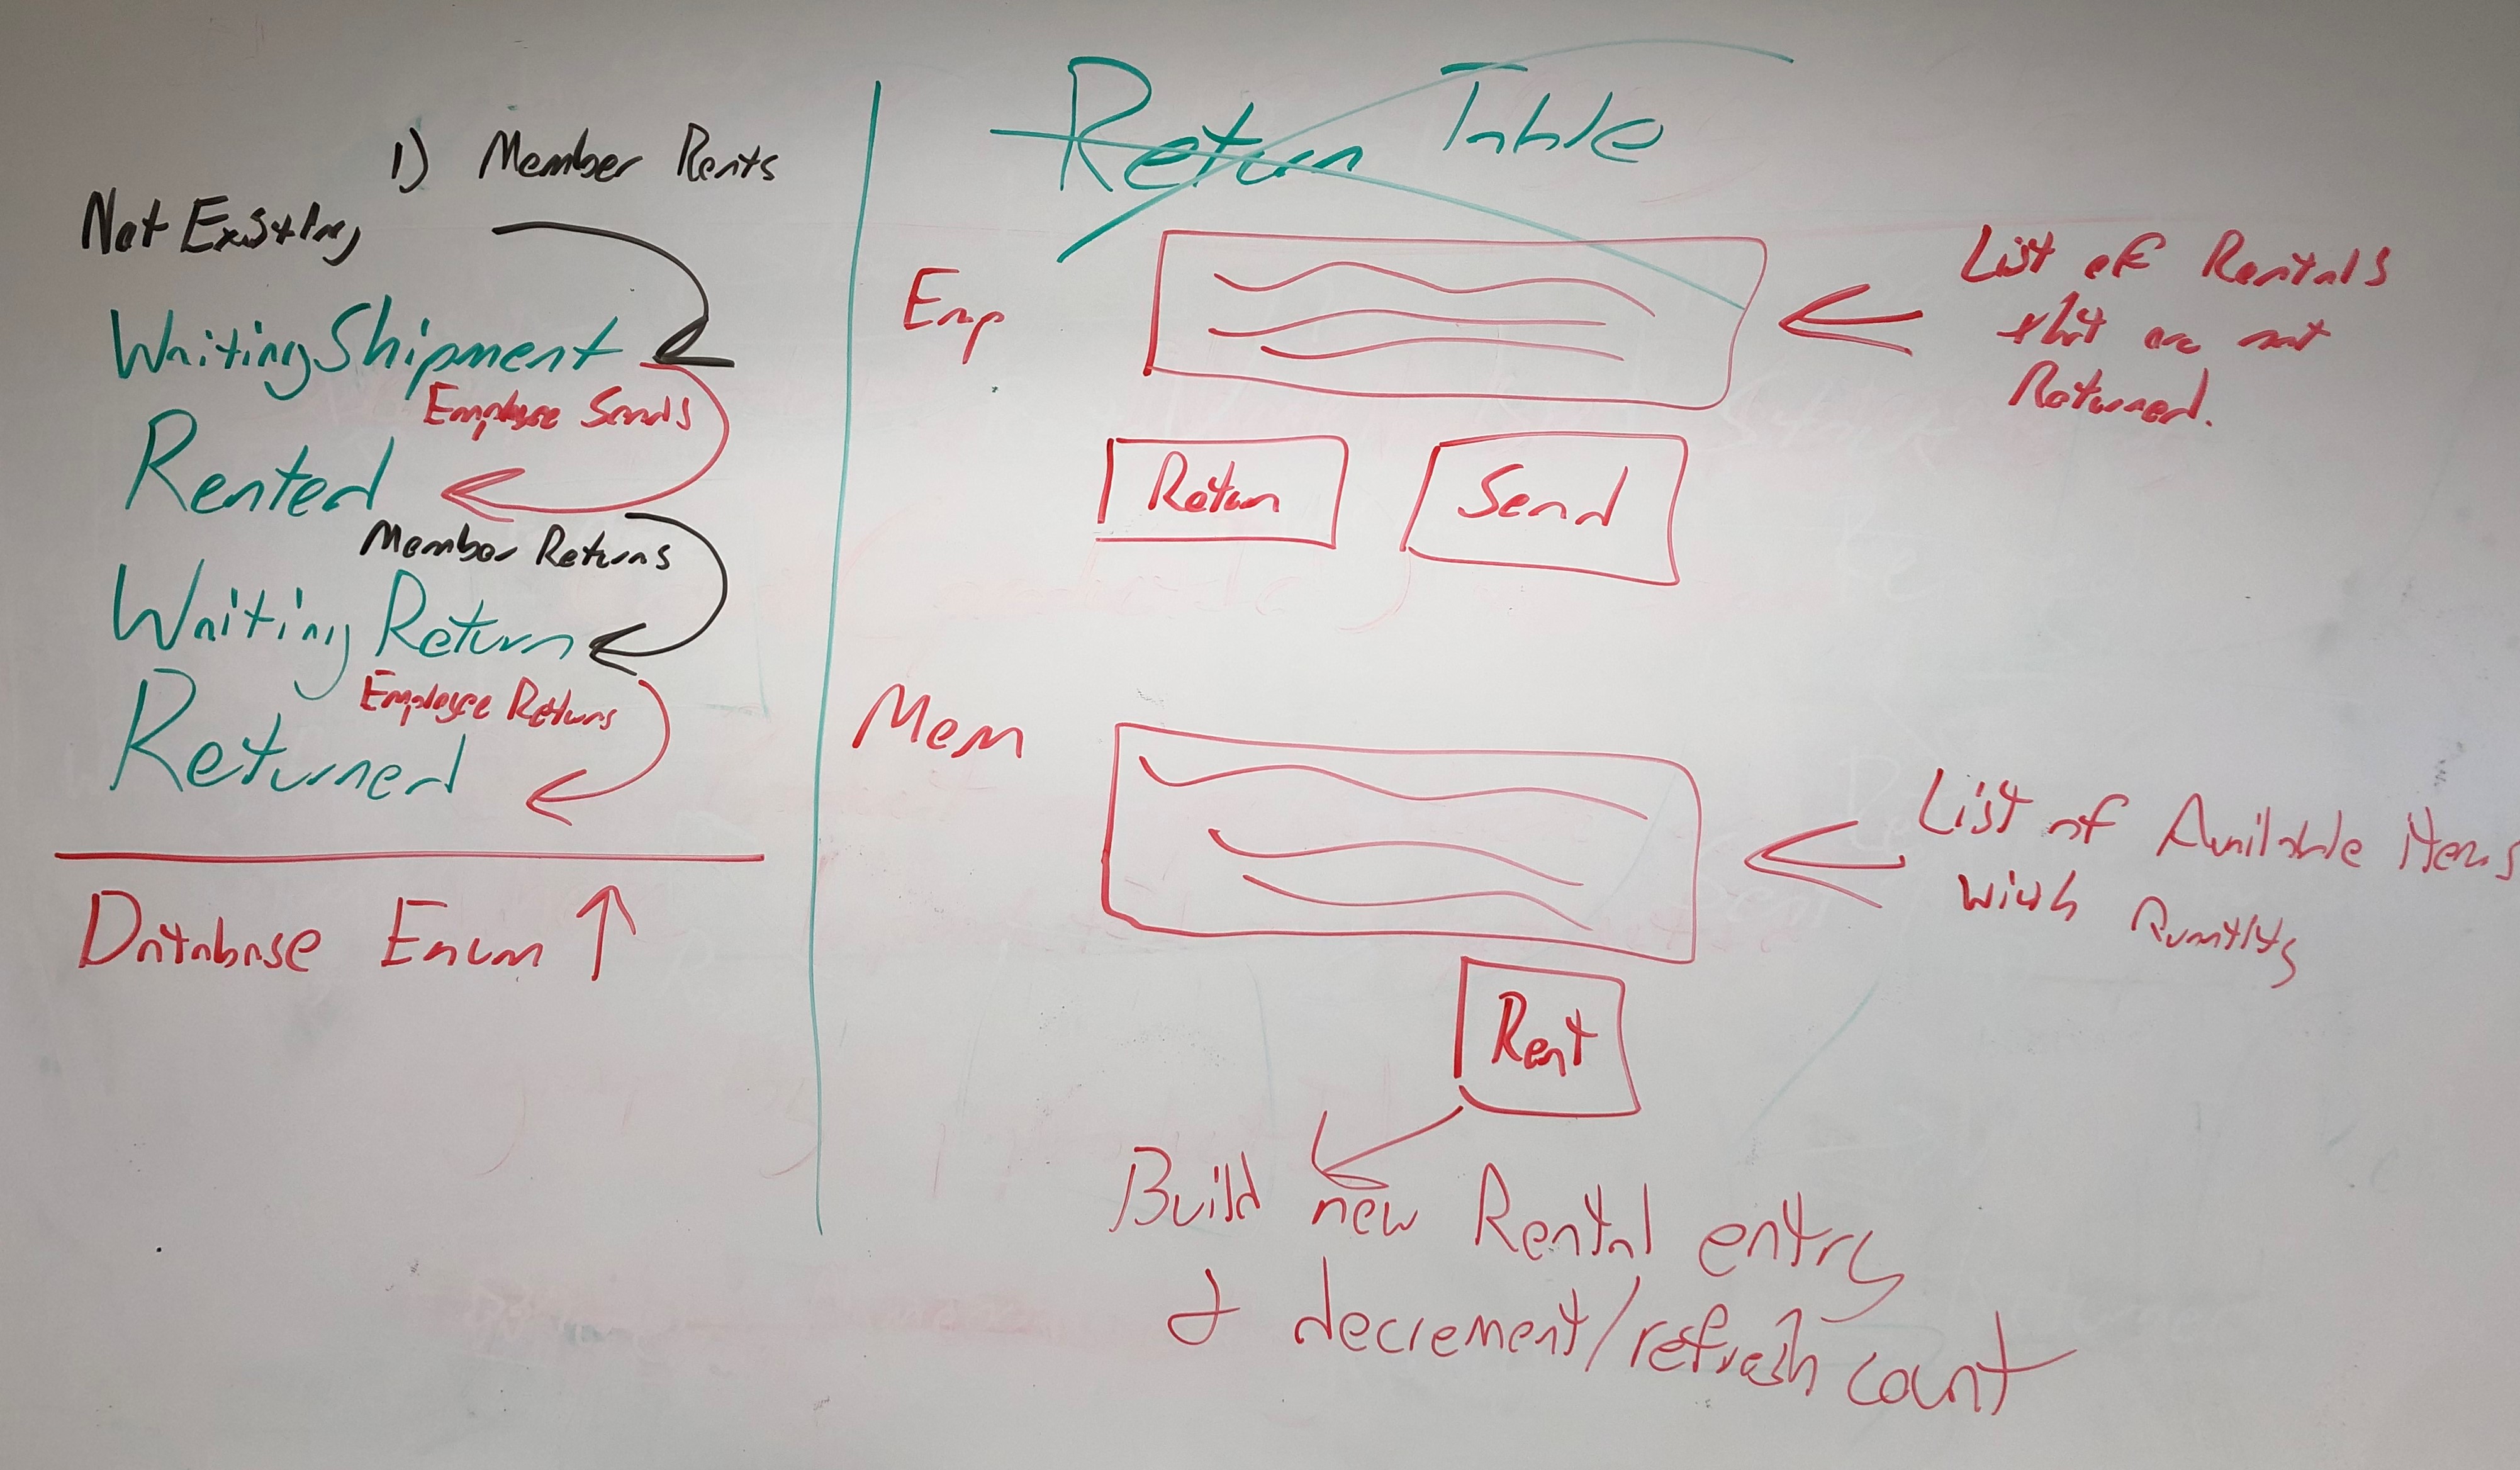 1) Member Rents
Not Existing
Waiting Shipment
Employee Sends
Rented
Member Returns
Waiting Return
Employee Returns
Returned
Database Enum ↑
Return Table
Emp
List of Rentals
that are not
Returned.
Return
Send
Mem
List of Available items
with Quantity
Rent
Build new Rental entry
& decrement/refresh count